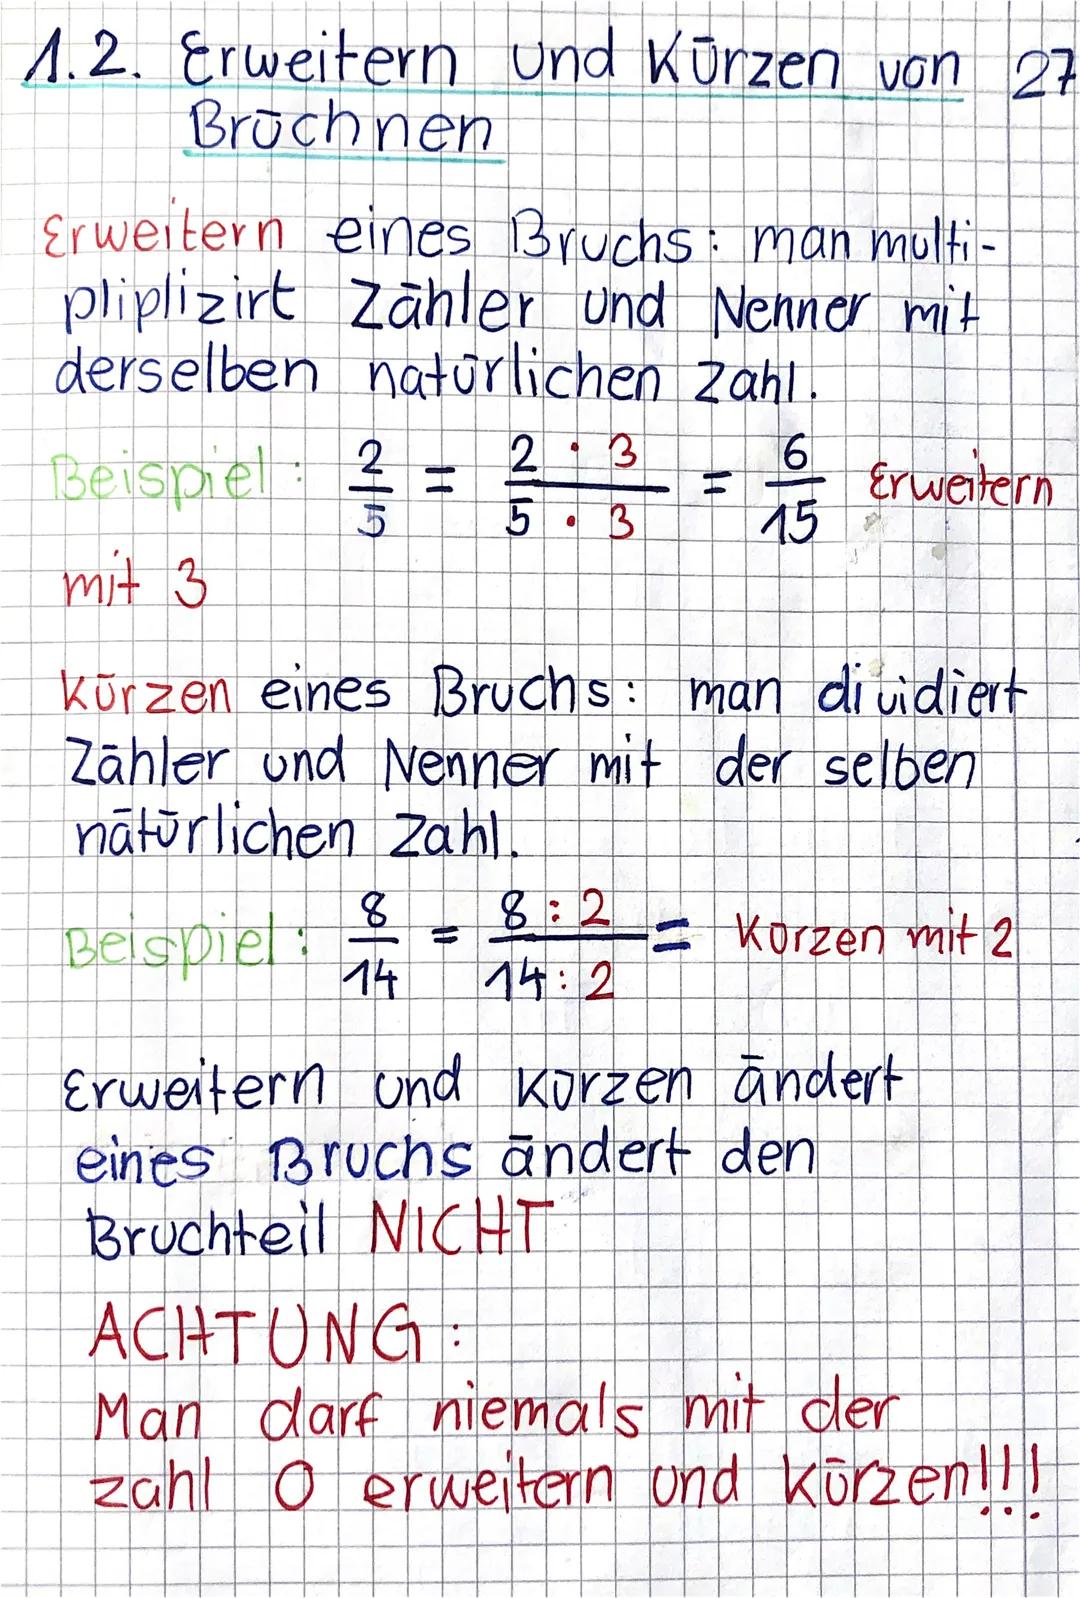 1.2. Erweitern und Kürzen von 27
Brüchnen
Erweitern eines Bruchs: man multi-
pliplizirt Zähler und Nenner mit
derselben natürlichen Zahl.
Beispiel: 2/5 = 2 · 3 / 5 · 3 = 6/15 Erweitern
mit 3
Kürzen eines Bruchs: man dividiert
Zähler und Nenner mit der selben
nätürlichen Zahl.
Beispiel: 8/14 = 8 : 2 / 14 : 2 = Kürzen mit 2
Erweitern und kürzen ändert
eines Bruchs ändert den
Bruchteil NICHT
ACHTUNG:
Man darf niemals mit der
zahl 0 erweitern und kürzen!!!